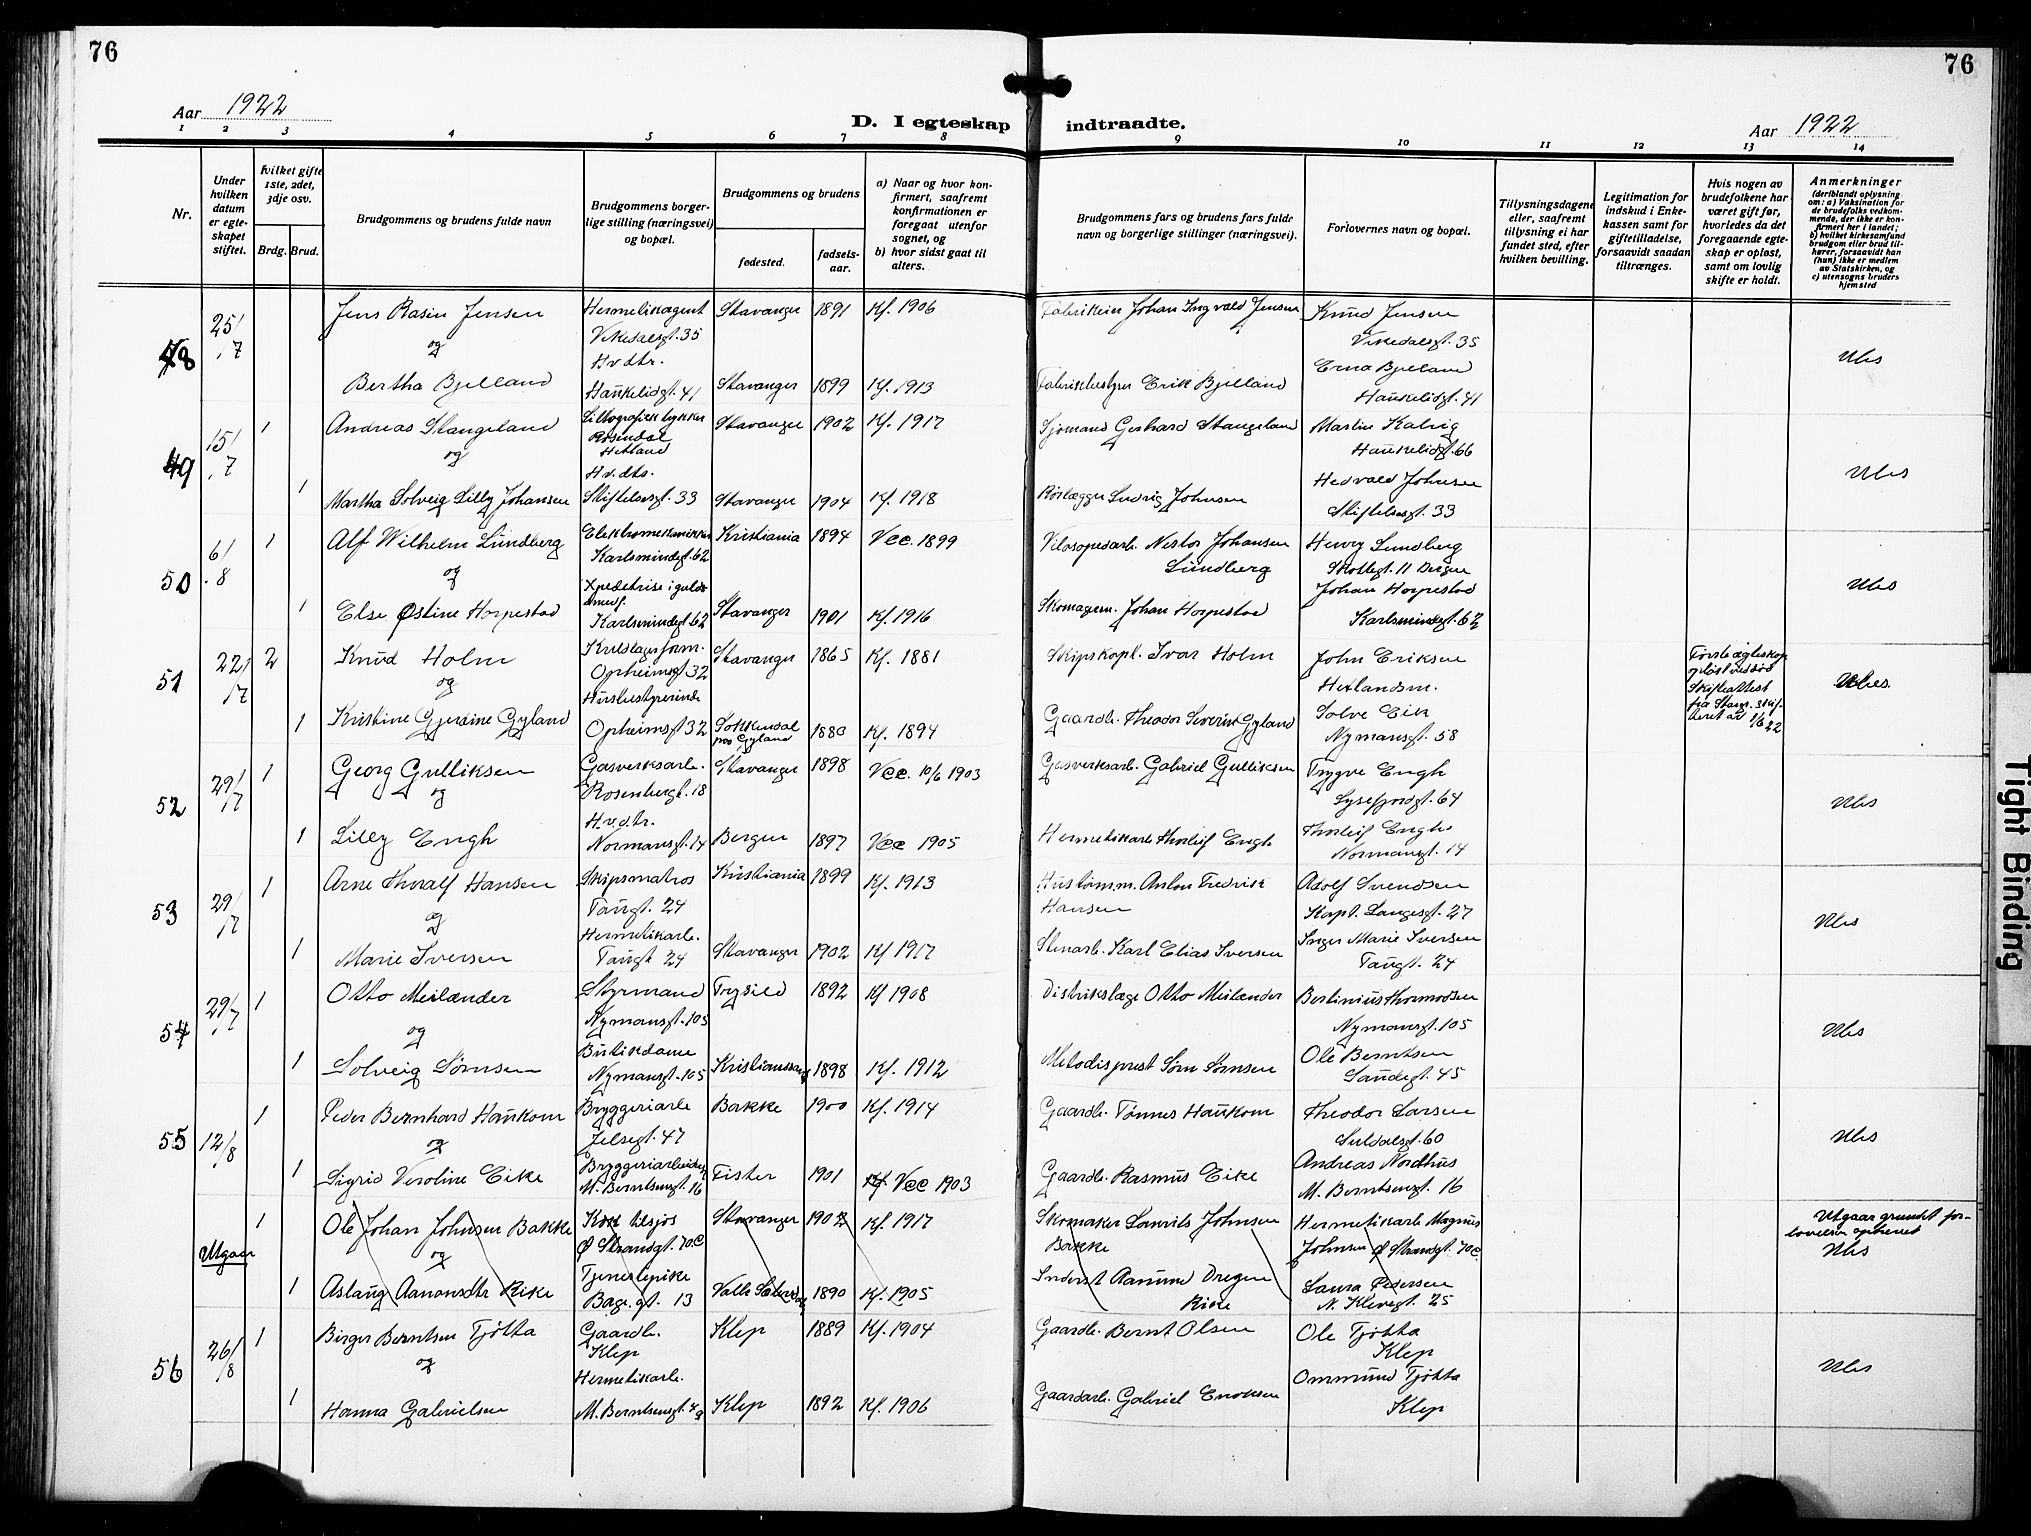 76
76
Aar 1922
D. I egteskap indtraadte.
Aar 1922
1 2 3 4 5 6 7 8 9 10 11 12 13 14
Nr.
Under hvilken datum er egteskapet stiftet.
hvilket gifte 1ste, 2det, 3dje osv.
Brdg. Brud.
Brudgommens og brudens fulde navn
Brudgommens borgerlige stilling (næringsvei) og bopæl.
Brudgommens og brudens
fødested.
fødselsaar.
a) Naar og hvor konfirmert, saafremt konfirmationen er foregaat utenfor sognet, og
b) hvor sidst gaat til alters.
Brudgommens fars og brudens fars fulde navn og borgerlige stillinger (næringsvei).
Forlovernes navn og bopæl.
Tillysningsdagene eller, saafremt tillysning ei har fundet sted, efter hvilken bevilling.
Legitimation for indskud i Enkekassen samt for giftetilladelse, forsaavidt saadan tiltrænges.
Hvis nogen av brudefolkene har været gift før, hvorledes da det foregaaende egteskap er opløst, samt om lovlig skifte er holdt.
Anmerkninger
(deriblandt oplysning om: a) Vaksination for de brudefolks vedkommende, der ikke er konfirmert her i landet;
b) hvilket kirkesamfund brudgom eller brud tilhører, forsaavidt han (hun) ikke er medlem av Statskirken, og
c) utensogns bruders hjemsted
48 25/7 Jens Rasin Jensen Hermetikagent Stavanger 1891 Kf. 1906 Fabrikeier Johan Ingvald Jensen Knud Jensen
og Vikedalsgt. 35 Vikedalsgt. 35
H.v.dtr. Erna Bjelland Ubs
Bertha Bjelland Haukeligt. 41 Stavanger 1899 Kf. 1913 Fabrikbestyrer Erik Bjelland Haukelidgt. 41
49 15/7 1 Andreas Stangeland Litografisk trykker Stavanger 1902 Kf. 1917 Sjømand Gerhard Stangeland Martin Kalvig
og Rosendal Hetland Haukelidgt. 66
H.v.dtr. Ubs
1 Martha Solveig Lilly Johansen Skiftelsesgt. 33 Stavanger 1904 Kf. 1918 Rørlægger Ludvig Johnsen Hedvald Johnsen
Stiftelsesgt. 33
50 6/8 1 Alf Wilhelm Lundberg Elektromekaniker Kristiania 1894 Vcc. 1899 Velosopedarb. Nestor Johansen Lundberg Henry Lundberg
og Karlsmindegt. 62 Skottegt. 11 Bergen
Xpeditrise i guldsmedf. Ubs
1 Else Østine Horpestad Karlsmindegt 62 Stavanger 1901 Kf. 1916 Skomagerm. Johan Horpestad Johan Horpestad
Karlsmindegt. 62
51 22/7 2 Knud Holm Stavanger 1865 Kf. 1881 Skipskapt. Ivar Holm John Eriksen
og Opheimsgt 32 Hetlandsm.
Husbestyrerinde
1 Kristine Gjerdine Gyland Opheimsgt 32 Gyland 1880 Kf. 1894 Gaardb. Theodor Severin Gyland Solve Eik
Nymansgt. 58
Første ægteskap opløst ved død Skifteattest fra Stavr. 1/6 22
Ubes
52 29/7 1 Georg Gulliksen Gasverksarb. Stavanger 1898 Vcc. 10/6 1903 Gasverksarb. Gabriel Gulliksen Trygve Engh
og Rosenbergt. 18 Lysefjordgt. 64
H.v.dtr. Ubs
1 Lilly Engh Normansgt. 14 Bergen 1897 Vcc 1905 Hermetikarb Thorleif Engh Thorleif Engh
Normansgt. 14
53 29/7 1 Arne Thoralf Hansen Skipsmatros Kristiania 1899 Kf. 1913 Hustømm. Anton Fredrik Hansen Adolf Svendsen
og Taugt. 24 Kapt. Langesgt. 27
Hermetikarb. Ubs
1 Marie Iversen Taugt 24 Stavanger 1902 Kf 1917 Stenarb. Karl Elias Iversen Inger Marie Iversen
Taugt. 24
54 29/7 1 Otto Meilænder Styrmand Trysild 1892 Kf 1908 Distrikslæge Otto Meilænder Bertinius Thormodsen
og Nymansgt. 105 Nymansgt. 105
Butikdame Ubs
1 Solveig Sørnsen Nymansgt. 105 Kristianssand 1898 Kf. 1912 Metodisprest Sørn Sørnsen Ole Berntsen
Sandegt. 45
55 12/8 1 Peder Bernhard Haukom Bryggeriarb Bakke 1900 Kf. 1914 Gaardb. Tønnes Haukom Theodor Larsen
og Jelsegt. 47 Suldalsgt. 60
Ubs
1 Sigrid Veroline Eike M. Berntsensgt. 16 Fister 1901 Vcc 1903 Gaardb. Rasmus Eike Andreas Nordhus
M. Berntsensgt. 16
Utgaar 1 Ole Johan Johnsen Bakke Kok tilsjøs Stavanger Kf. 1917 Skomaker Johnsen Bakke Hermetikarb Magnus
og Ø Strandgt. 70c Johnsen Ø Strandgt. 70c
Tjenestepike
1 Aslaug Aanonsdtr Rike gt. 13 1890 Kf. 1905 Rike Laura Pedersen
N. Klevegt. 25
Utgaar grundet forlovelsen ophævet
Ubs
56 26/8 1 Birger Berntsen Tjøtta Gaardb. Klep 1889 Kf. 1904 Gaardb. Bernt Olsen Ole Tjøtta
og Klep Klep
Hermetikarb. Ubs
1 Hanna Gabrielsen M. Berntsensgt. Klep 1892 Kf. 1906 Gaardarb. Gabriel Enoksen Ommund Tjøtta
Klep
Tight Binding